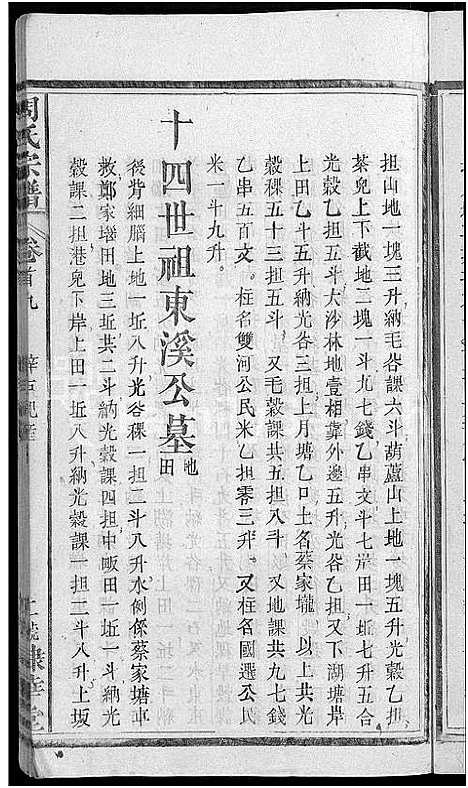 担山地一塊三升納毛谷課六斗葫蘆山上地一塊五升光穀乙担
茶兒上下截地二塊一斗九七錢乙串文斗七岸田一坵七升五合
光穀乙担五斗大沙林地壹相靠外邊五升光谷乙担又下湖塘岸
上田乙斗五升納光谷三担上月塘乙口土名蔡家壠 以上共光
穀稞五十三担五斗 又毛穀課共五担八斗 又地課共九七錢
乙串五百文。柱名雙河公民米乙担零三升。又柱名國選公民
米一斗九升。
十四世祖東溪公墓地田
後背細腦上地一坵八升光谷稞一担二斗八升水側係蔡家塘
救鄭家塝田地三坵共二斗納光穀課四担中畈田一坵一斗納光
穀課二担港兒下岸上田一坵八升納光穀課一担二斗八升上坂
周氏宗譜
卷首九